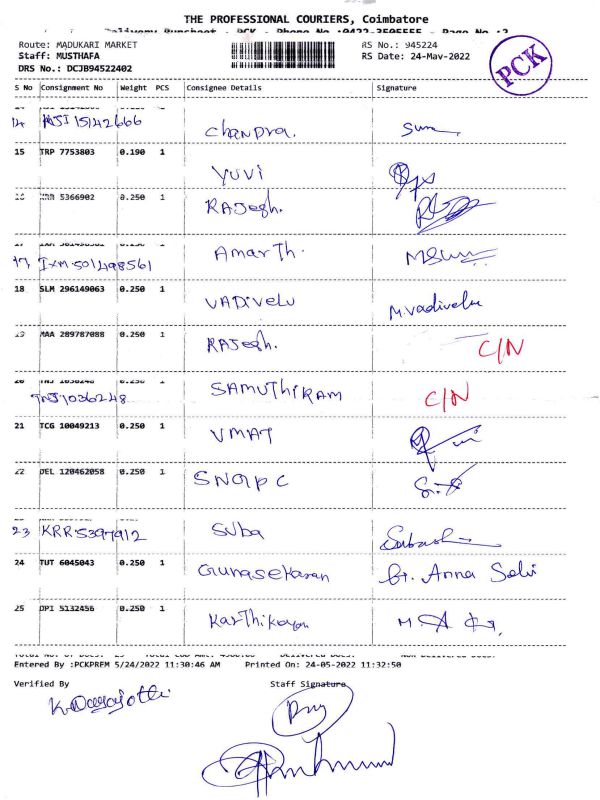 THE PROFESSIONAL COURIERS, Coimbatore
Delivery Runsheet - PCK - Phone No :0422-3505555 - Page No :2
Route: MADUKARI MARKET RS No.: 945224
Staff: MUSTHAFA RS Date: 24-May-2022
DRS No.: DCJB94522402
PCK
S No Consignment No Weight PCS Consignee Details Signature
14 15142666 Chandra.
15 TRP 7753803 0.190 1 YUVi
5366902 0.250 1 RAJegh.
17 IXM 501498561 AmarTh.
18 SLM 296149063 0.250 1 VADiveLu M.Vadivelu
19 MAA 289787088 0.250 1 RAJegh. C/N
20 TNJ 1036248 0.250 1
TNJ1036248 SAMUThiRAM C/N
21 TCG 10049213 0.250 1 VMAT
22 DEL 120462058 0.250 1 SNapc
23 KRR5397912 Suba
24 TUT 6045043 0.250 1 Gunasekaran G. Anna Selvi
25 OPI 5132456 0.250 1 Karthikayan
Entered By :PCKPREM 5/24/2022 11:30:46 AM Printed On: 24-05-2022 11:32:50
Verified By Staff Signature